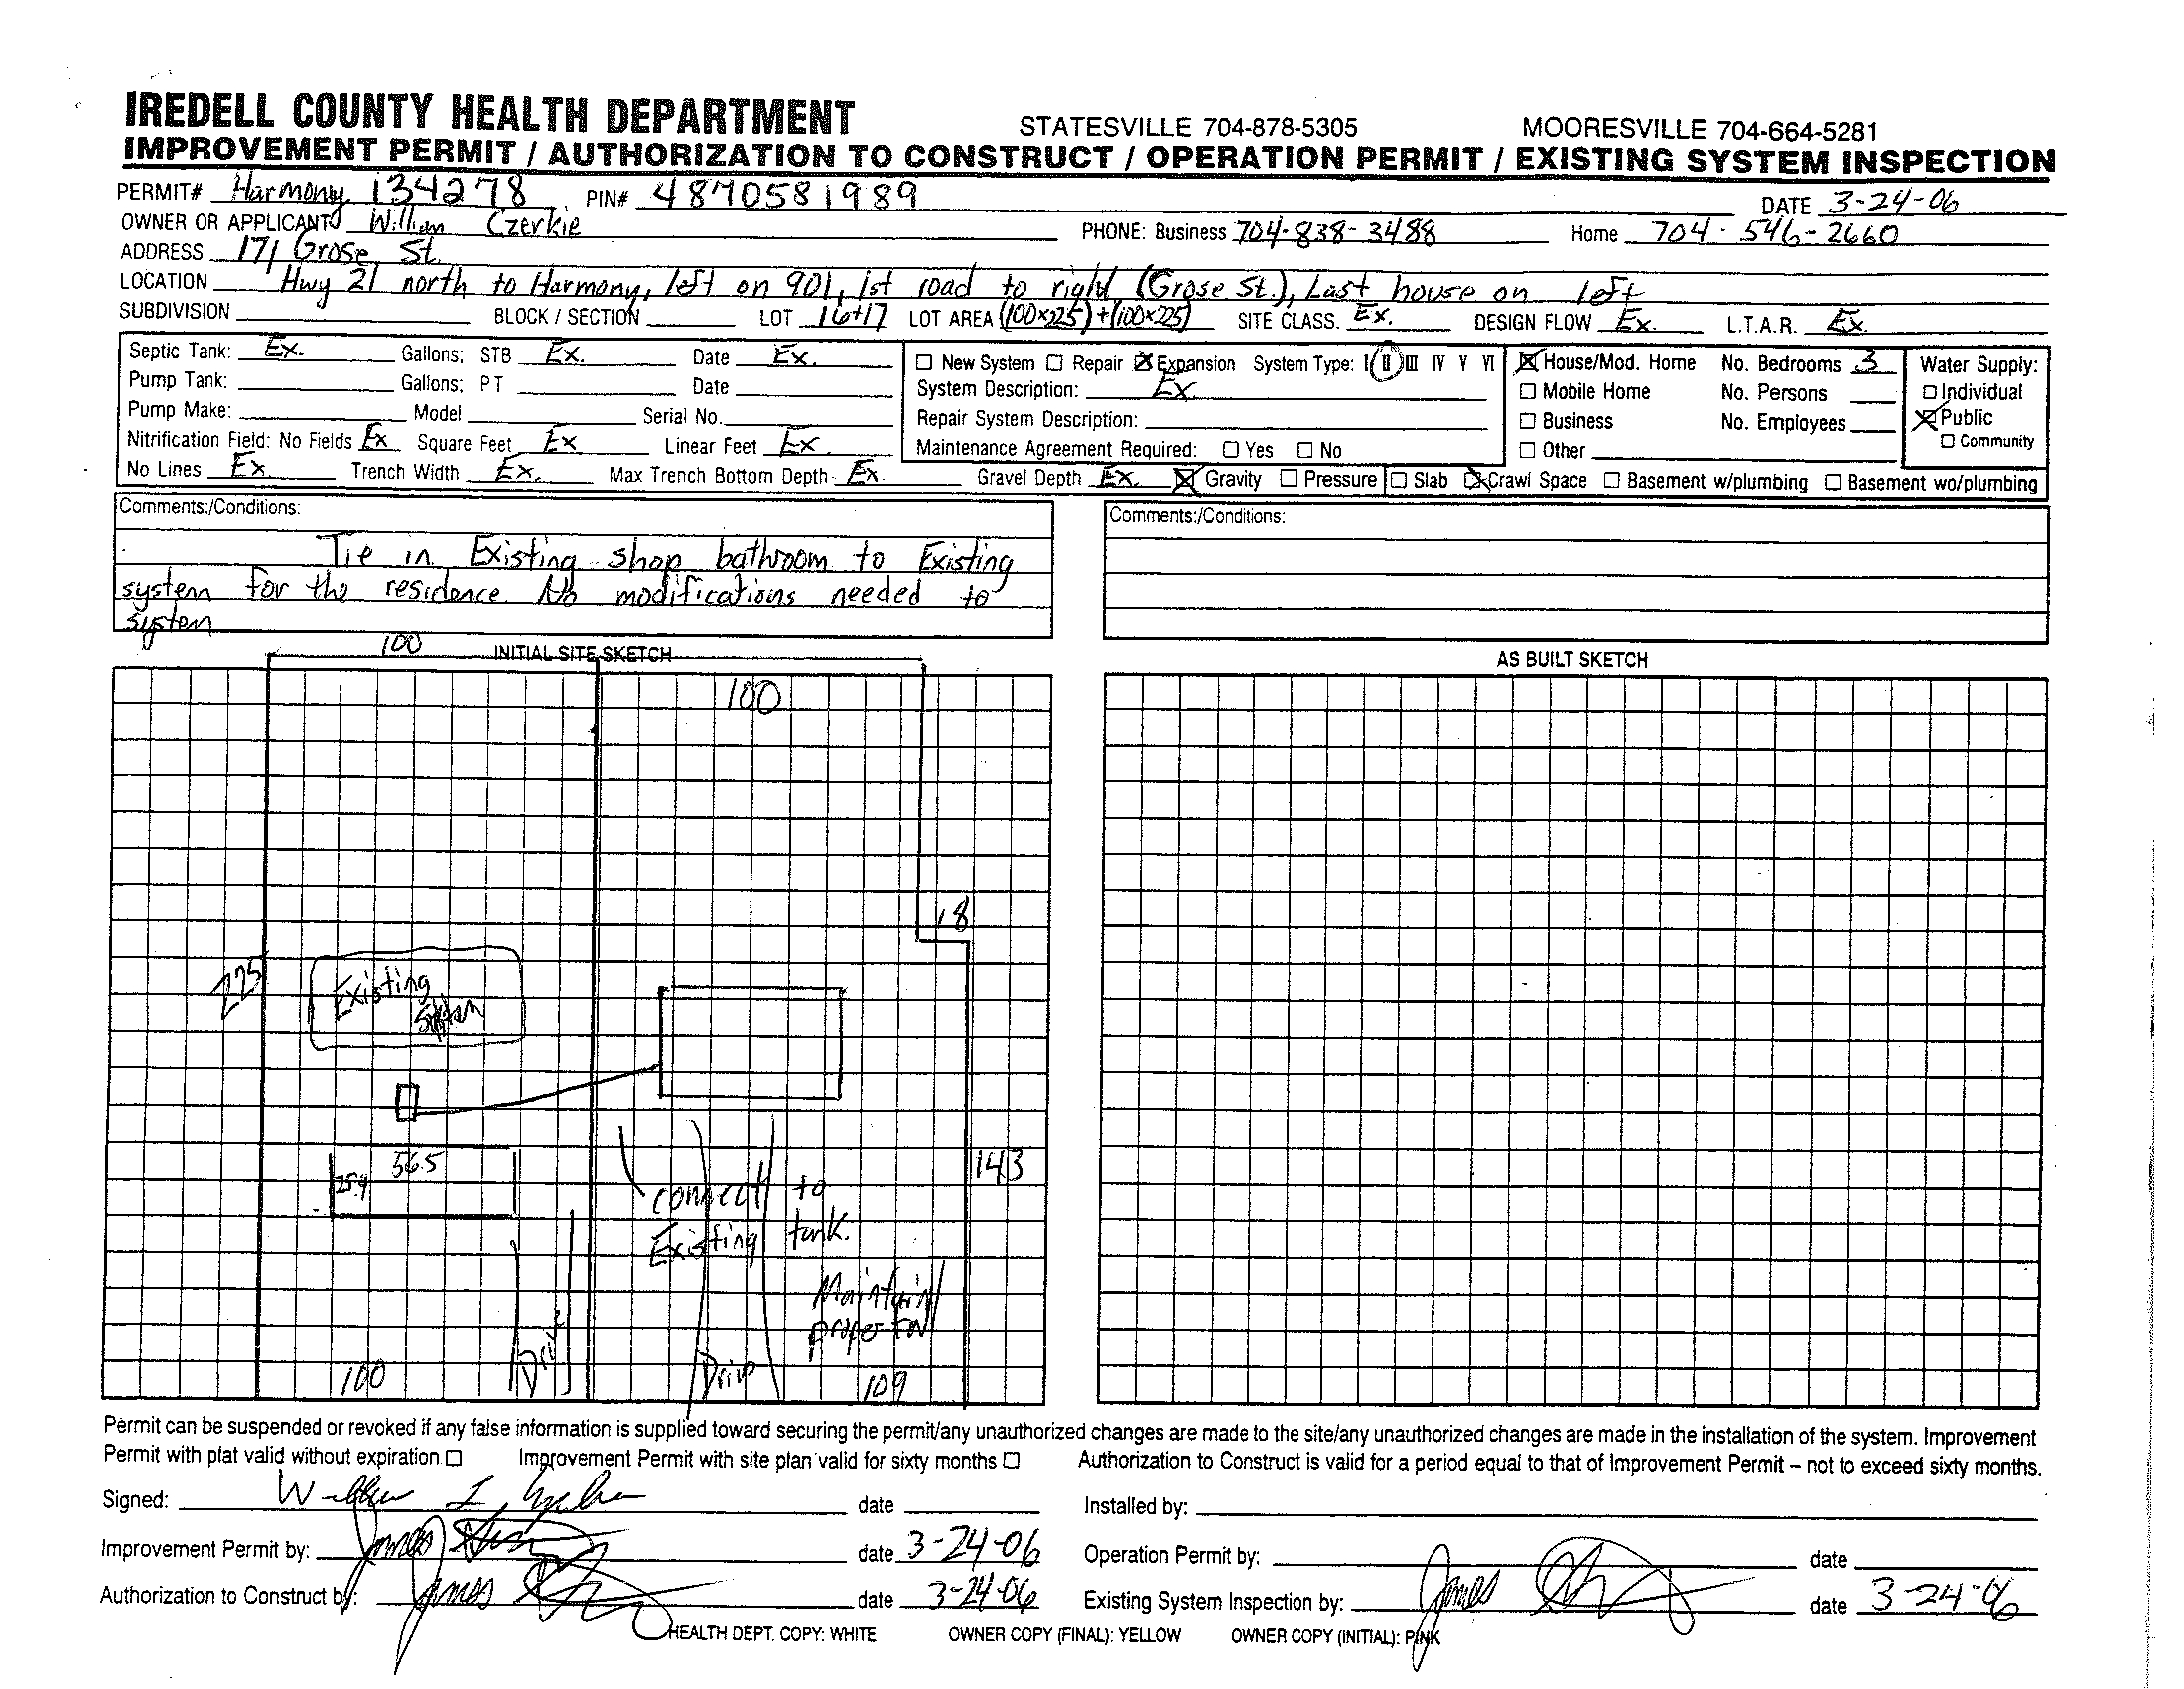 IREDELL COUNTY HEALTH DEPARTMENT STATESVILLE 704-878-5305 MOORESVILLE 704-664-5281
IMPROVEMENT PERMIT / AUTHORIZATION TO CONSTRUCT / OPERATION PERMIT / EXISTING SYSTEM INSPECTION
PERMIT# Harmony 134278 PIN# 4870581989 DATE 3-24-06
OWNER OR APPLICANT William Czerkie PHONE: Business 704-838-3488 Home 704-546-2660
ADDRESS 171 Grose St.
LOCATION Hwy 21 north to Harmony, left on 901, 1st road to right (Grose St.), Last house on left
SUBDIVISION BLOCK / SECTION LOT 16+17 LOT AREA (100x225)+(100x225) SITE CLASS. Ex. DESIGN FLOW Ex. L.T.A.R. Ex.
Septic Tank: Ex. Gallons: STB Ex. Date Ex.
Pump Tank: Gallons: PT Date
Pump Make: Model Serial No.
Nitrification Field: No Fields Ex Square Feet Ex Linear Feet Ex
No Lines Ex. Trench Width Ex. Max Trench Bottom Depth Ex. Gravel Depth Ex. ☒ Gravity ☐ Pressure
☐ New System ☐ Repair ☒ Expansion System Type: I II III IV V VI
System Description: Ex.
Repair System Description:
Maintenance Agreement Required: ☐ Yes ☐ No
☒ House/Mod. Home No. Bedrooms 3
☐ Mobile Home No. Persons
☐ Business No. Employees
☐ Other
Water Supply:
☐ Individual
☒ Public
☐ Community
☐ Slab ☒ Crawl Space ☐ Basement w/plumbing ☐ Basement wo/plumbing
Comments:/Conditions:
Tie in Existing shop bathroom to Existing
system for the residence. No modifications needed to
system
Comments:/Conditions:
INITIAL SITE SKETCH
100
100
18
225
Existing
System
56.5
25.9
143
connect to
Existing tank.
Maintain
proper
100
Drive
Drive
109
AS BUILT SKETCH
Permit can be suspended or revoked if any false information is supplied toward securing the permit/any unauthorized changes are made to the site/any unauthorized changes are made in the installation of the system. Improvement
Permit with plat valid without expiration ☐ Improvement Permit with site plan valid for sixty months ☐ Authorization to Construct is valid for a period equal to that of Improvement Permit – not to exceed sixty months.
Signed: date Installed by:
Improvement Permit by: James date 3-24-06 Operation Permit by: date
Authorization to Construct by: James date 3-24-06 Existing System Inspection by: James date 3-24-06
HEALTH DEPT. COPY: WHITE OWNER COPY (FINAL): YELLOW OWNER COPY (INITIAL): PINK